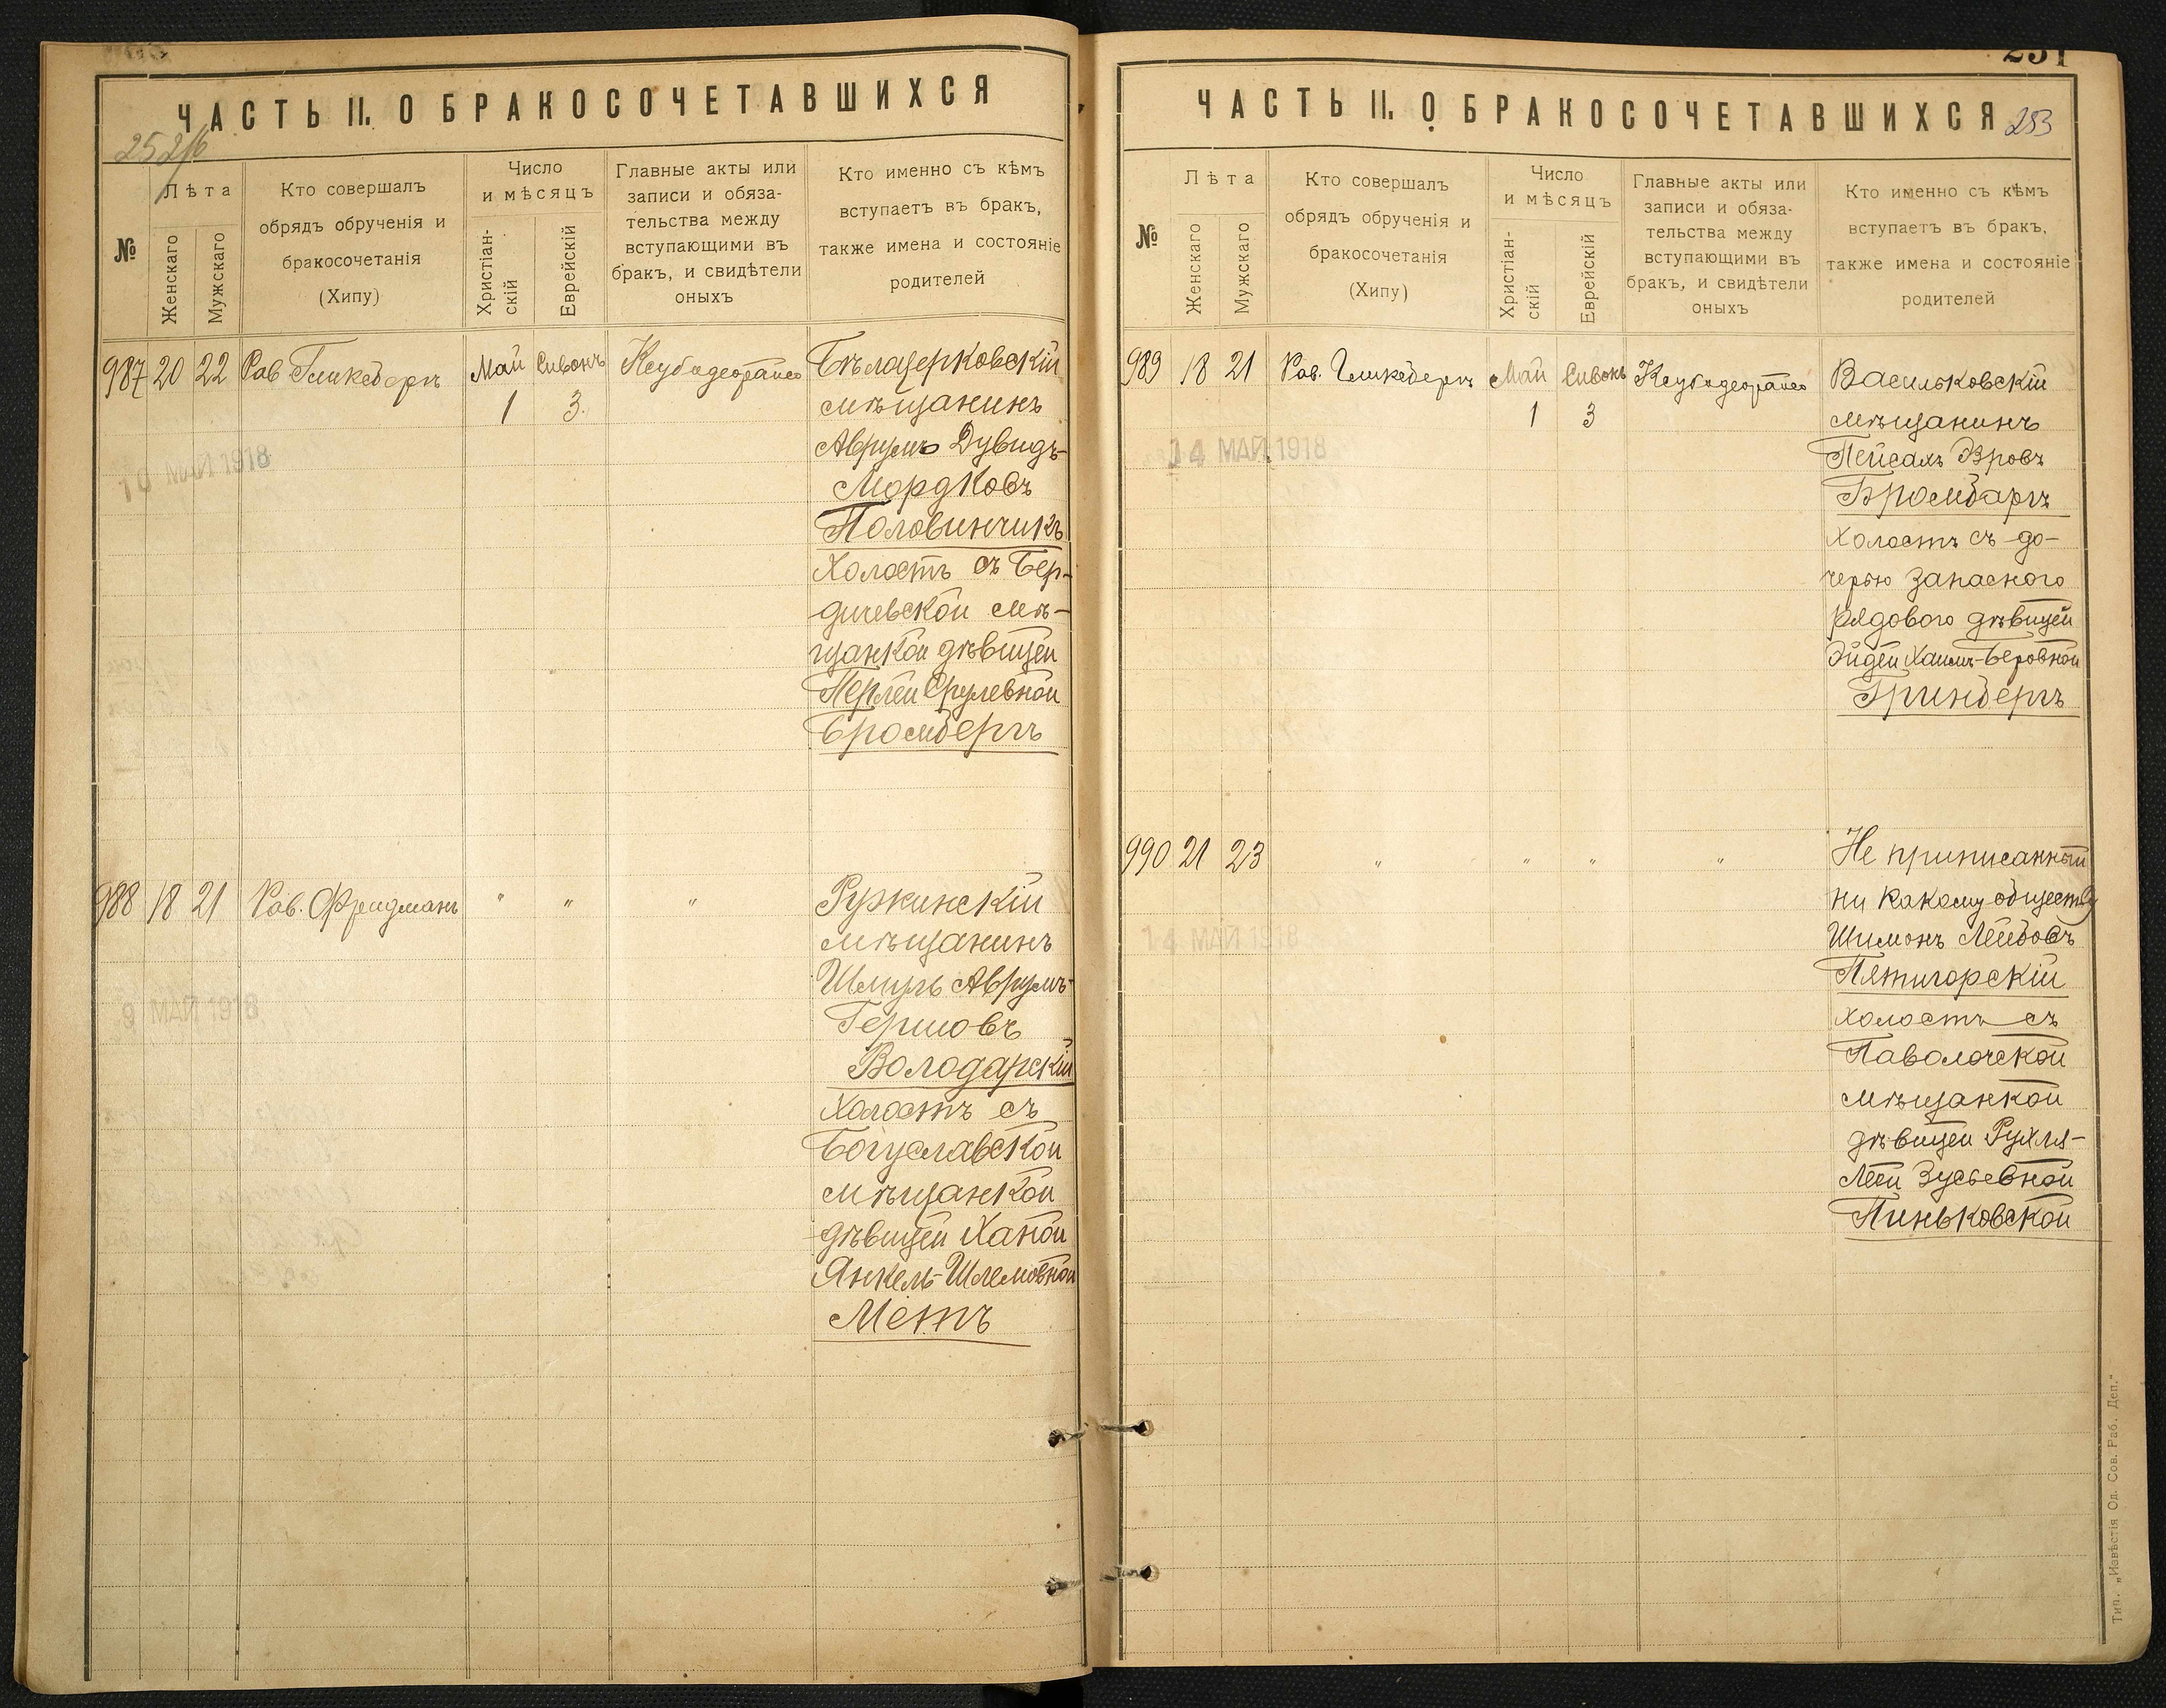 ЧАСТЬ II. О БРАКОСОЧЕТАВШИХСЯ
№
Лѣта
Женскаго
Мужскаго
Кто совершалъ
обрядъ обрученія и
бракосочетанія
(Хипу)
Число
и мѣсяцъ
Христіан-
скій
Еврейскій
Главные акты или
записи и обяза-
тельства между
вступающими въ
бракъ, и свидѣтели
оныхъ
Кто именно съ кѣмъ
вступаетъ въ бракъ,
также имена и состояніе
родителей
987 20 22 Рав Гликсбергъ Май Сивонъ
1 3
10 МАЙ 1918
Бѣлацерковскій
мѣщанинъ
Аврумъ Дувидъ-
Мордковъ
Половинчикъ
Холостъ съ Бер-
дичевской мѣ-
щанкой дѣвицей
Перлей Срулевной
Бромбергъ
988 18 21 Рав. Фридманъ " " "
9 МАЙ 1918
Ружинскій
мѣщанинъ
Шмуль Аврумъ-
Гершовъ
Володарскій
Холостъ съ
Богуславской
мѣщанкой
дѣвицей Ханой
Янкель-Шлемовной
Метъ
251
ЧАСТЬ II. О БРАКОСОЧЕТАВШИХСЯ
253
№
Лѣта
Женскаго
Мужскаго
Кто совершалъ
обрядъ обрученія и
бракосочетанія
(Хипу)
Число
и мѣсяцъ
Христіан-
скій
Еврейскій
Главные акты или
записи и обяза-
тельства между
вступающими въ
бракъ, и свидѣтели
оныхъ
Кто именно съ кѣмъ
вступаетъ въ бракъ,
также имена и состояніе
родителей
989 18 21 Рав. Гликсбергъ Май Сивонъ
1 3
14 МАЙ 1918
Васильковскій
мѣщанинъ
Пейсахъ
Бромбаргъ
Холостъ съ до-
черью запасного
рядового дѣвицей
Эйдей Хаимъ-Беровной
Гринбергъ
990 21 23 " " " "
14 МАЙ 1918
Не приписанный
ни какому обществу
Шимонъ Лейбовъ
Пятигорскій
холостъ съ
Паволочской
мѣщанкой
дѣвицей Рухля-
Леей Зусьевной
Пиньковской
Тип. „Извѣстія Од. Сов. Раб. Деп."